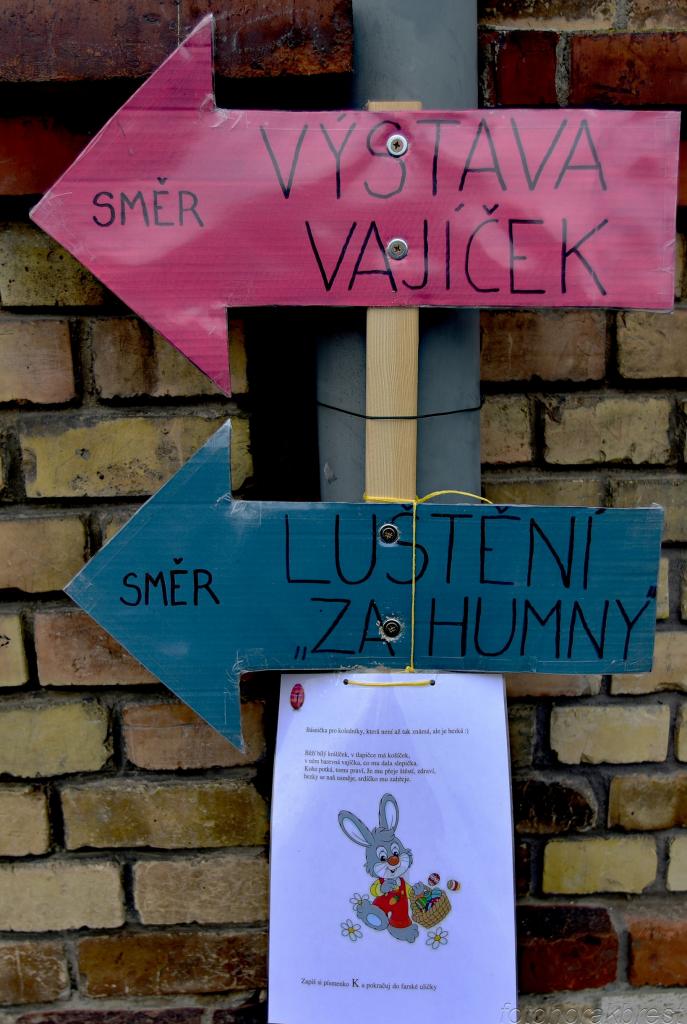 SMĚR
VÝSTAVA
VAJÍČEK
SMĚR
LUŠTĚNÍ
„ZA HUMNY“
Básnička pro koledníky, která není až tak známá, ale je hezká :)
Běží bílý králíček, v tlapičce má košíček,
v něm barevná vajíčka, co mu dala slepička.
Koho potká, tomu praví, že mu přeje štěstí, zdraví,
hezky se naň usměje, srdíčko mu zahřeje.
Zapiš si písmenko K a pokračuj do farské uličky